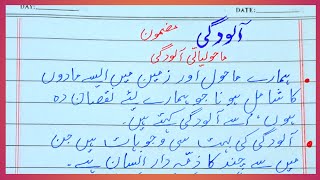 DAY: DATE:
آلودگی
مضمون
ماحولیاتی آلودگی
ہمارے ماحول اور زمین میں ایسے مادوں
کا شامل ہونا جو ہمارے لئے نقصان دہ
ہوں، اسے آلودگی کہتے ہیں۔
آلودگی کی بہت سی وجوہات ہیں جن
میں سے چند کا ذمّہ دار انسان ہے۔